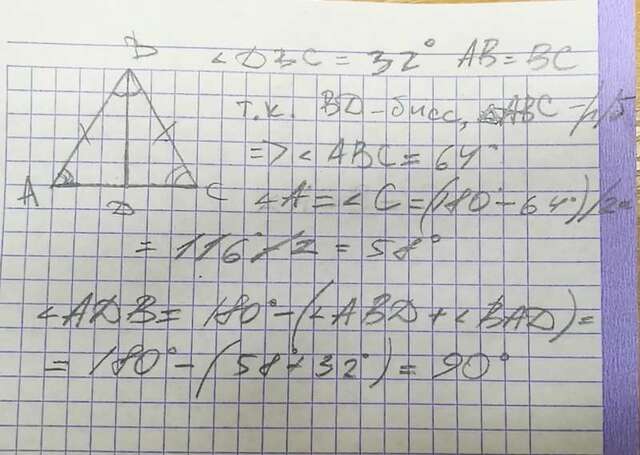 B
∠DBC = 32° AB = BC
т.к. BD - бисс, △ABC - р/б
=> ∠ABC = 64°
A D C
∠A = ∠C = (180° - 64°)/2 =
= 116°/2 = 58°
∠ADB = 180° - (∠ABD + ∠BAD) =
= 180° - (58° + 32°) = 90°